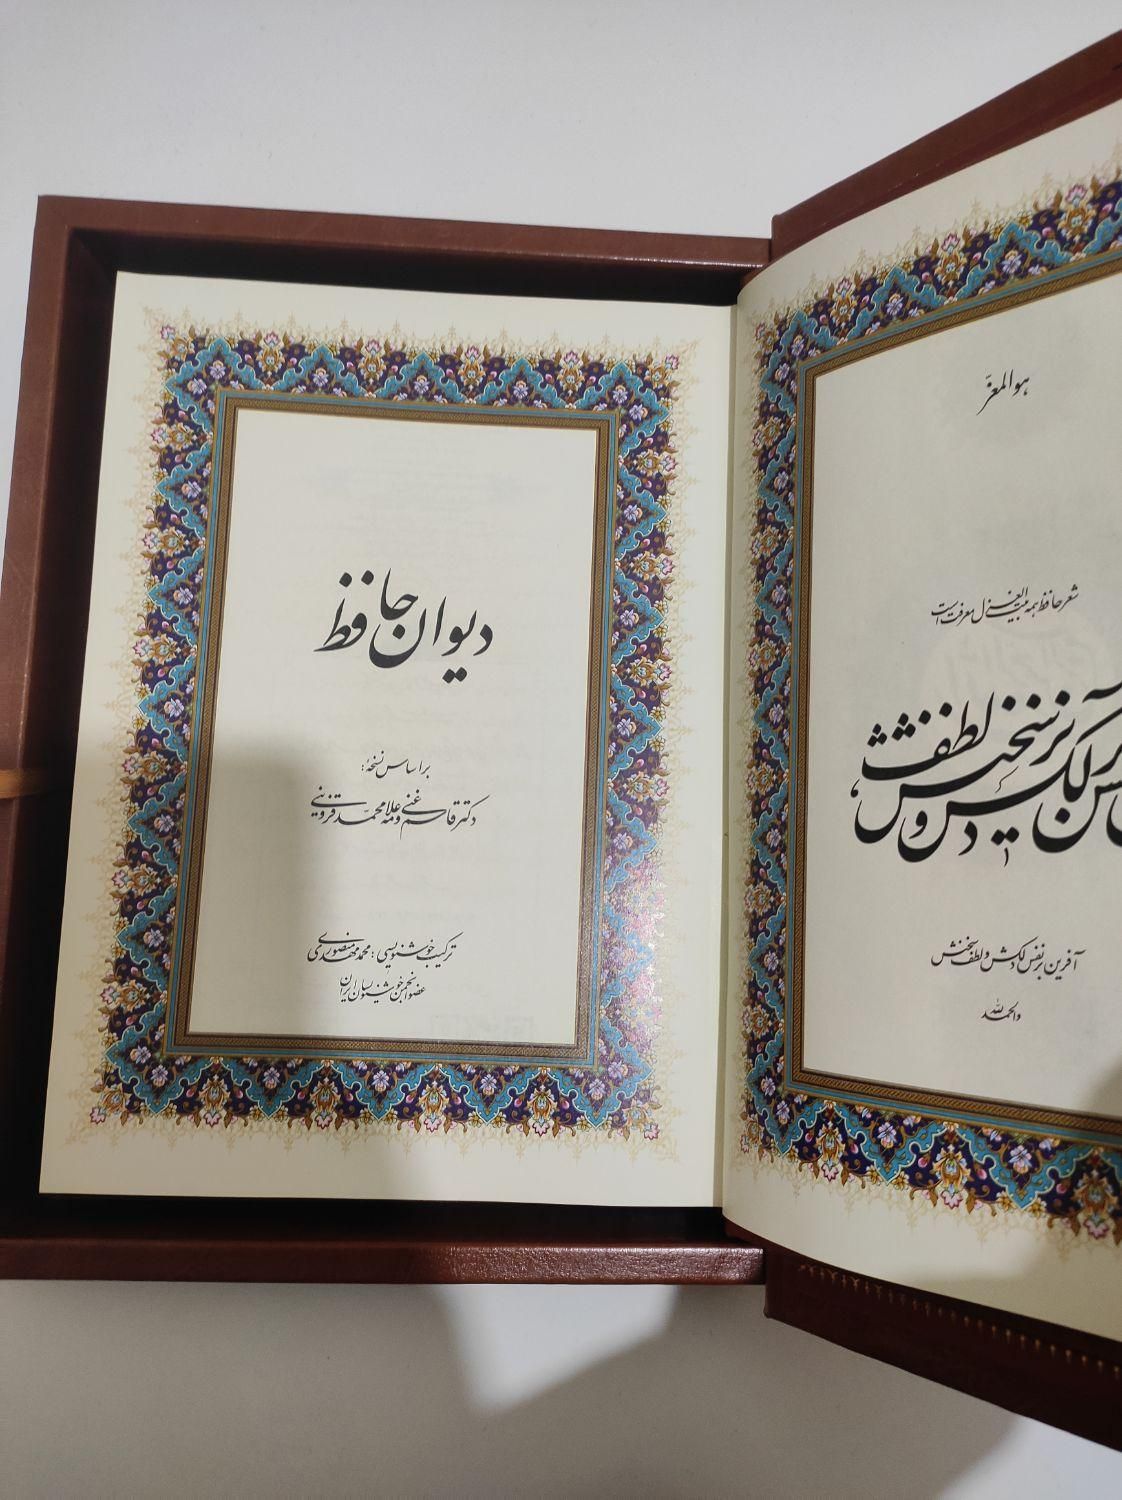 هو المعزّ
شعر حافظ همه بیت الغزل معرفت است
آفرین بر نفس دلکش و لطف سخنش
والحمد لله
دیوان حافظ
بر اساس نسخهٔ:
دکتر قاسم غنی و علامه محمد قزوینی
ترکیب خوشنویسی: محمد مهدی منصوری
عضو انجمن خوشنویسان ایران